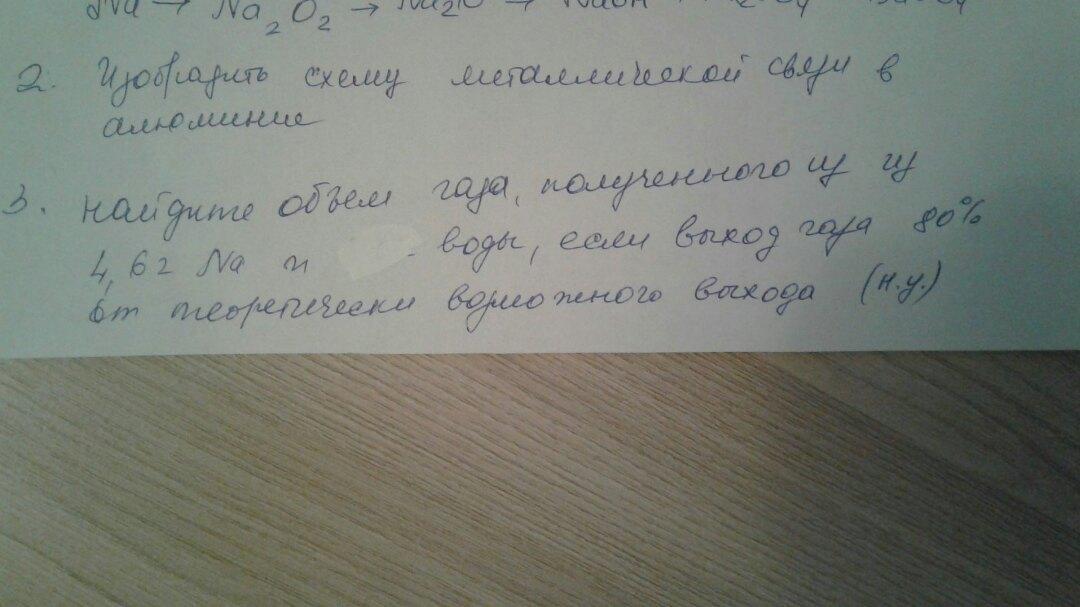 Na → Na₂O₂ → Na₂O → NaOH
2. Изобразить схему металлической связи в
алюминие
3. Найдите объем газа, полученного из из
4,6г Na и воды, если выход газа 80%
от теоретически возможного выхода (н.у.)